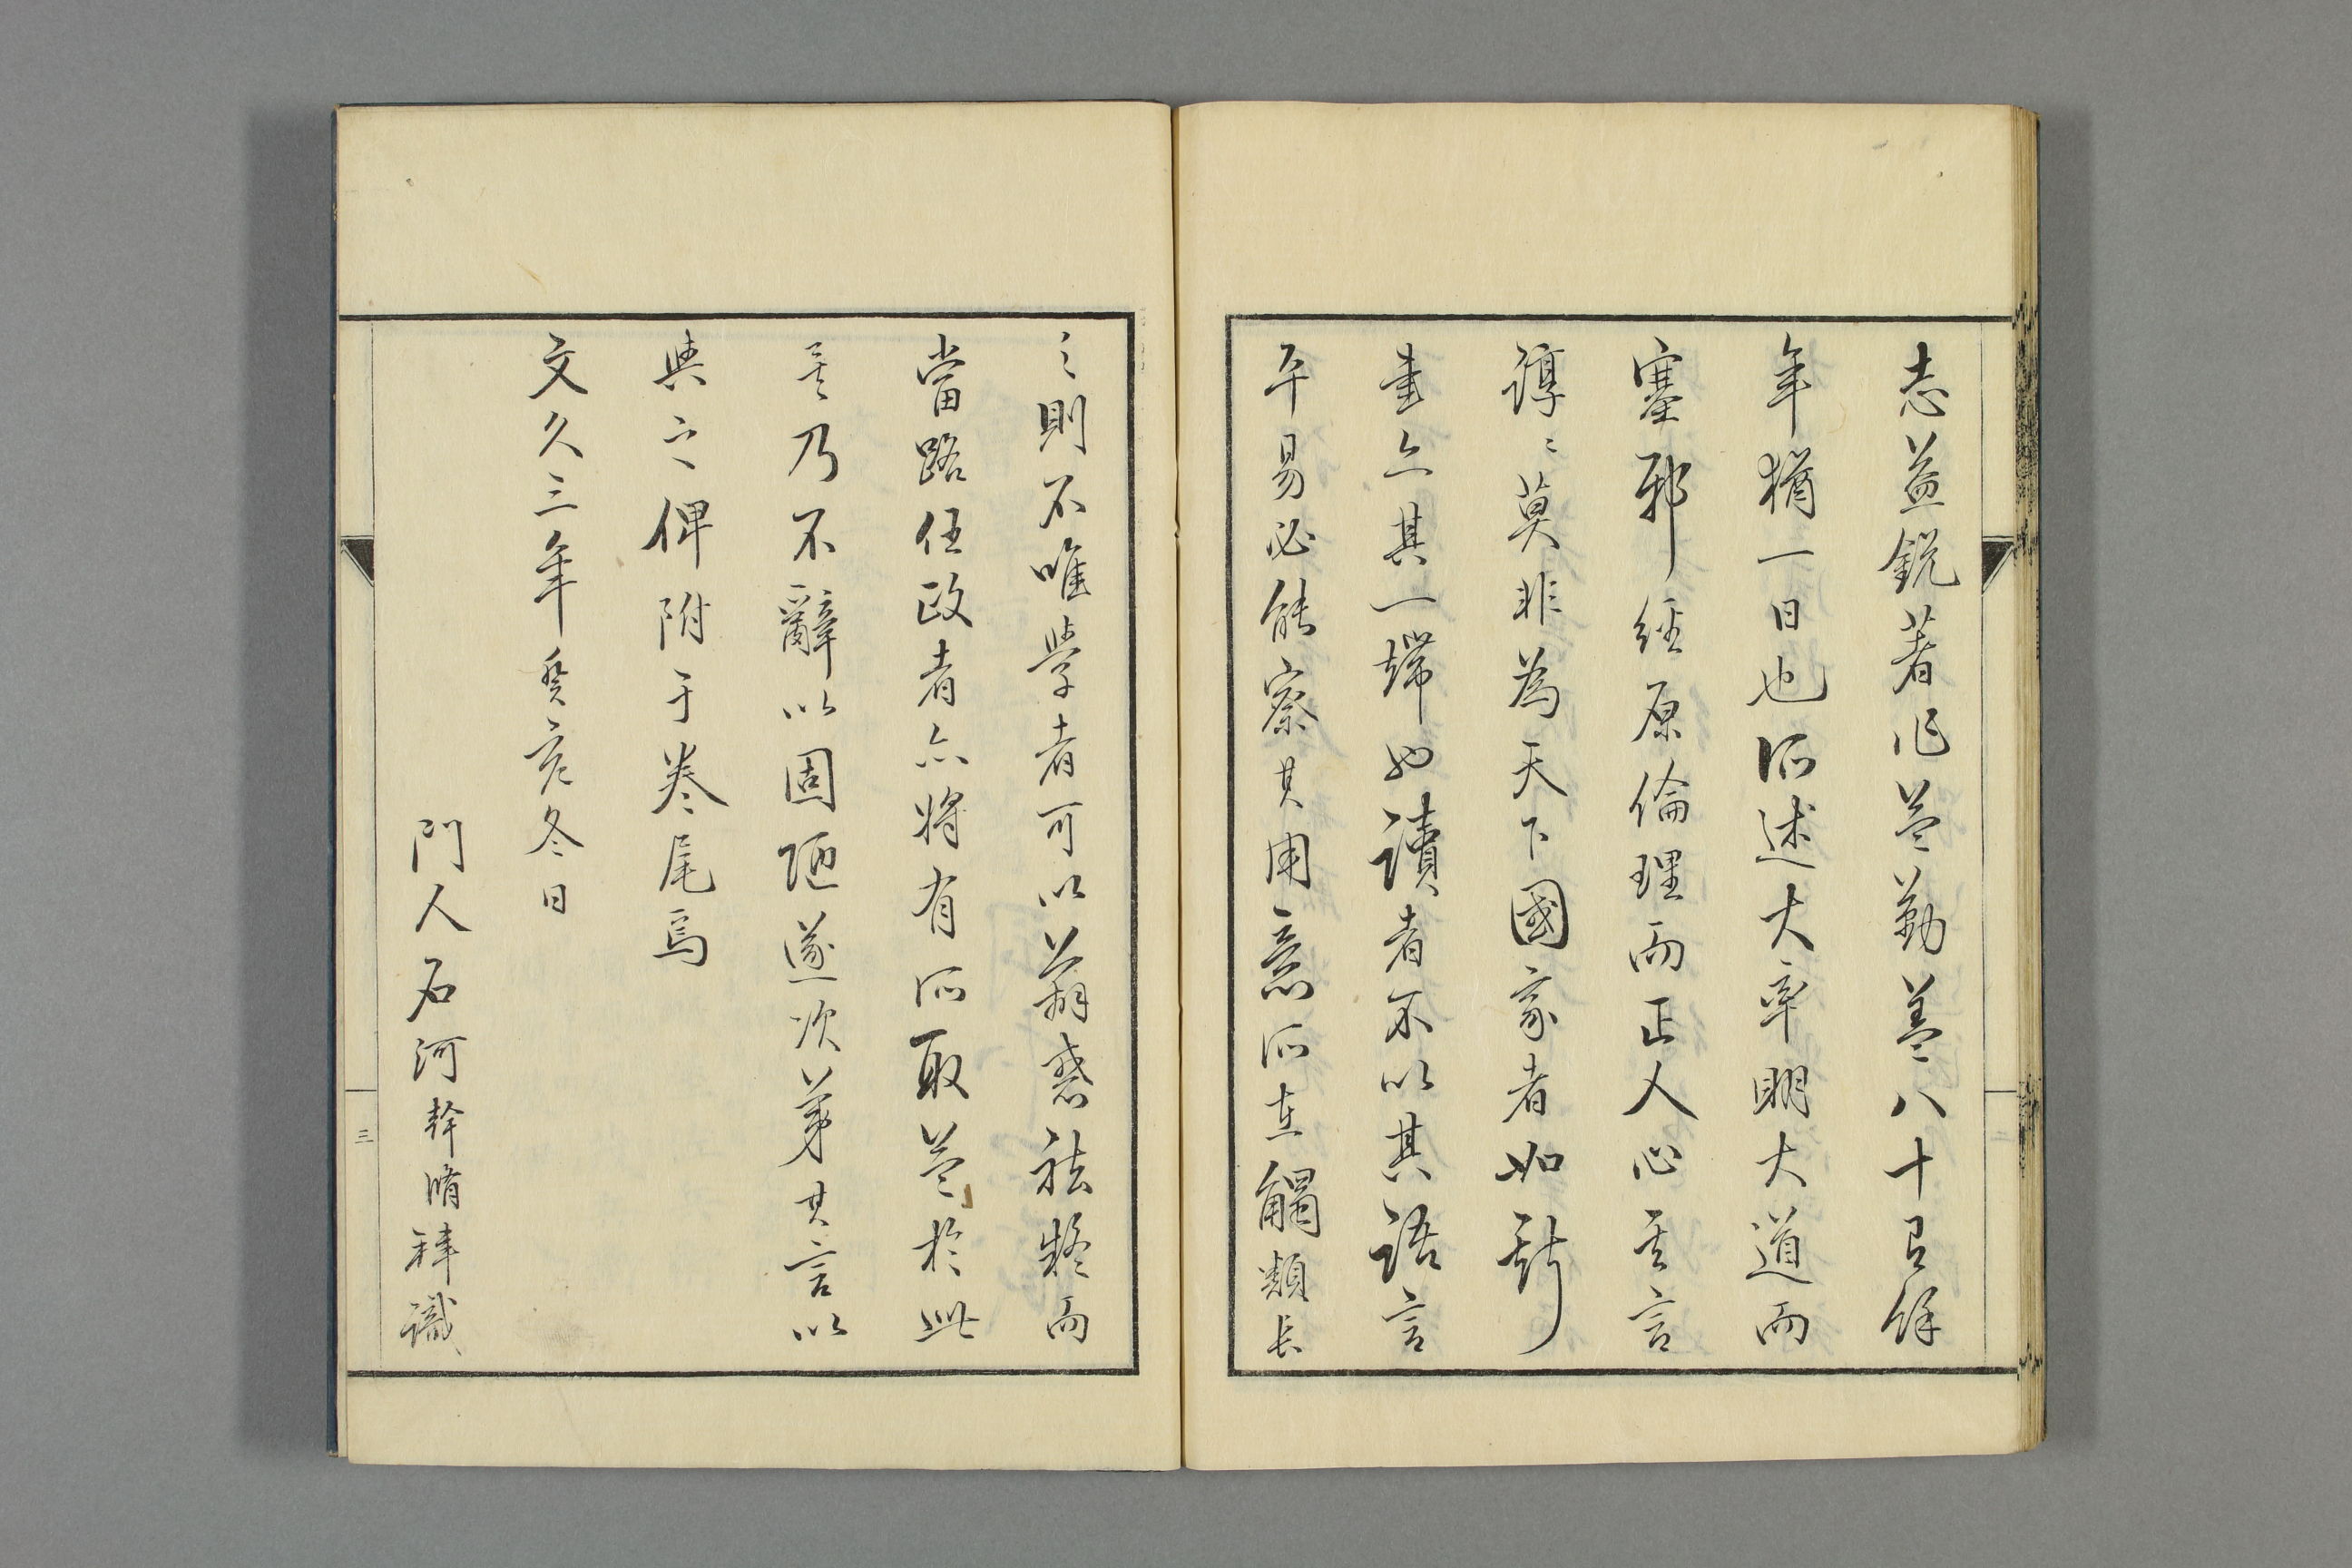 志益鋭著作益勤蓋八十有餘
年猶一日也所述大率明大道而
塞邪径原倫理而正人心其言
諄〻莫非為天下國家者如斯
書亦其一端也讀者不以其語言
平易必能察其用意所在觸類長
之則不唯學者可以蕲惑祛疑而
當路任政者亦将有所取益於此
其乃不辭以固陋遂次第其言以
與之俾附于卷尾焉
文久三年癸亥冬日
門人石河幹脩拜識
三